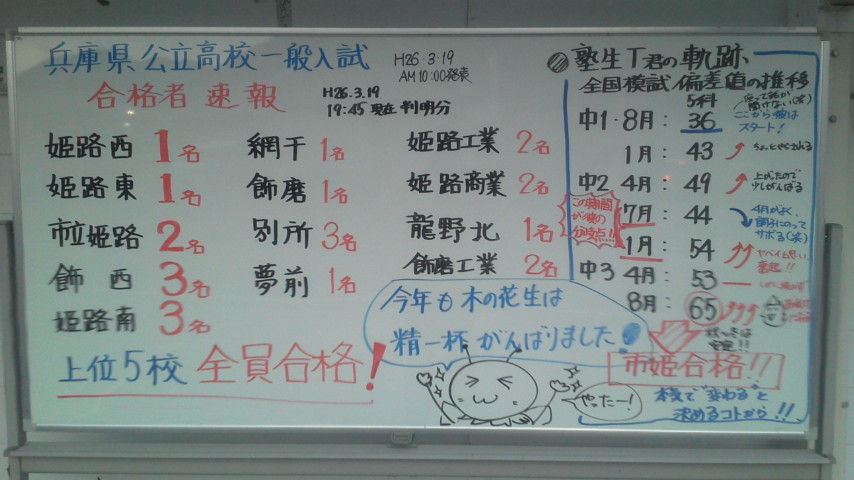 兵庫県公立高校一般入試
H26.3.19
AM10:00発表
合格者速報
H26.3.19
19:45 現在 判明分
姫路西 1名
姫路東 1名
市立姫路 2名
飾西 3名
姫路南 3名
網干 1名
飾磨 1名
別所 3名
夢前 1名
姫路工業 2名
姫路商業 2名
龍野北 1名
飾磨工業 2名
上位5校 全員合格!
今年も木の花生は
精一杯がんばりました
やったー!
塾生T君の軌跡
全国模試/偏差値の推移
5科
中1・8月: 36
ここから彼は
スタート!
1月: 43
中2 4月: 49
上がったので
少しがんばる
7月: 44
4月がよく
調子にのって
サボる(笑)
この期間
が彼の
分岐点!!
1月: 54
中3 4月: 53
8月: 65
市姫合格!!
本気で"変わる"と
決めるコトから!!